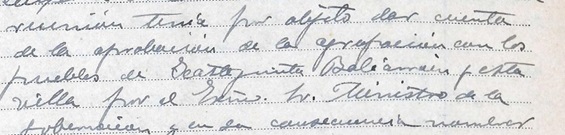 reunión tenia por objeto dar cuenta
de la aprobación de la agrupación con los
pueblos de Baliarrain y esta
villa por el Exmo. Sr. Ministro de la
Gobernación y en su consecuencia nombrar